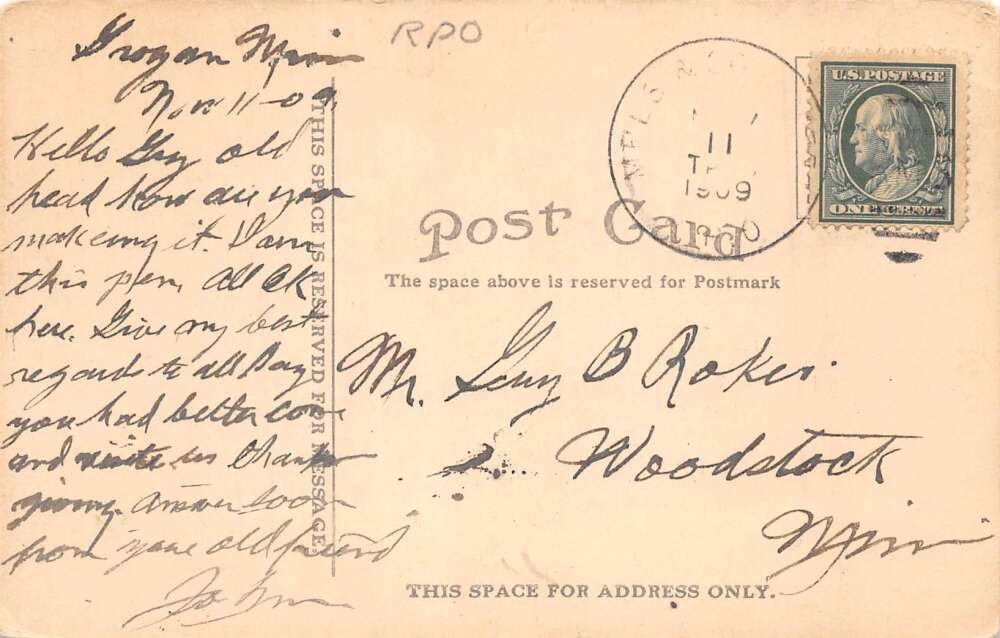 Grogan Minn
Nov 11-09.
Hello Guy old
head how are you
makeing it. Darn
this pen, All OK
here. Give my best
regards to all Say
you had better come
and visite us thanks
giving. answer soon
from your old friend
RPO
MPLS &
11
1909
R.P.O
U.S. POSTAGE
ONE CENT
Post Card
The space above is reserved for Postmark
THIS SPACE IS RESERVED FOR MESSAGE.
Mr. Guy B Rokes.
Woodstock
Minn
THIS SPACE FOR ADDRESS ONLY.